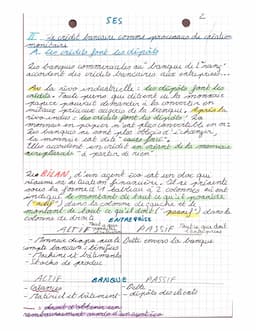 SES
2
II. Le crédit bancaire comme processus de création
monétaire
A. Les crédits font les dépôts
Les banques commerciales ou "banque de l'...
accordent des crédits bancaires aux entreprises...
Av la révo industrielle : les dépôts font les
crédits. Toute pers qui détient de la monnaie
papier pourrait demander à la convertir en
métaux précieux auprès de la banque. Après la
révo indus : les crédits font les dépôts. La
monnaie en papier n'est plus convertible en m2
Les banques ne sont plus obligé d'échanger,
la monnaie est dite
Elles accordent un crédit en créant de la monnaie
scripturale "à partir de rien".
Le BILAN, d'un agent éco est un doc qui
résume sa situation financière. Il se présente
sous la forme d'1 tableau à 2 colonnes où est
indiqué le montant de tout ce qu'il possède
("actif") dans la colonne de gauche et le
montant de tout ce qu'il doit ("passif") dans la
colonne de droite.
ENTREPRISE
ACTIF PASSIF Tout ce que doit
l'entreprise
- Monnaie disponible sur le
compte bancaire : bénéfices
- Machine et bâtiments
- Stocks de produits
- Dette envers la banque
ACTIF BANQUE PASSIF
- Créances
- Matériel et bâtiment
- Dette
- dépôts des clients